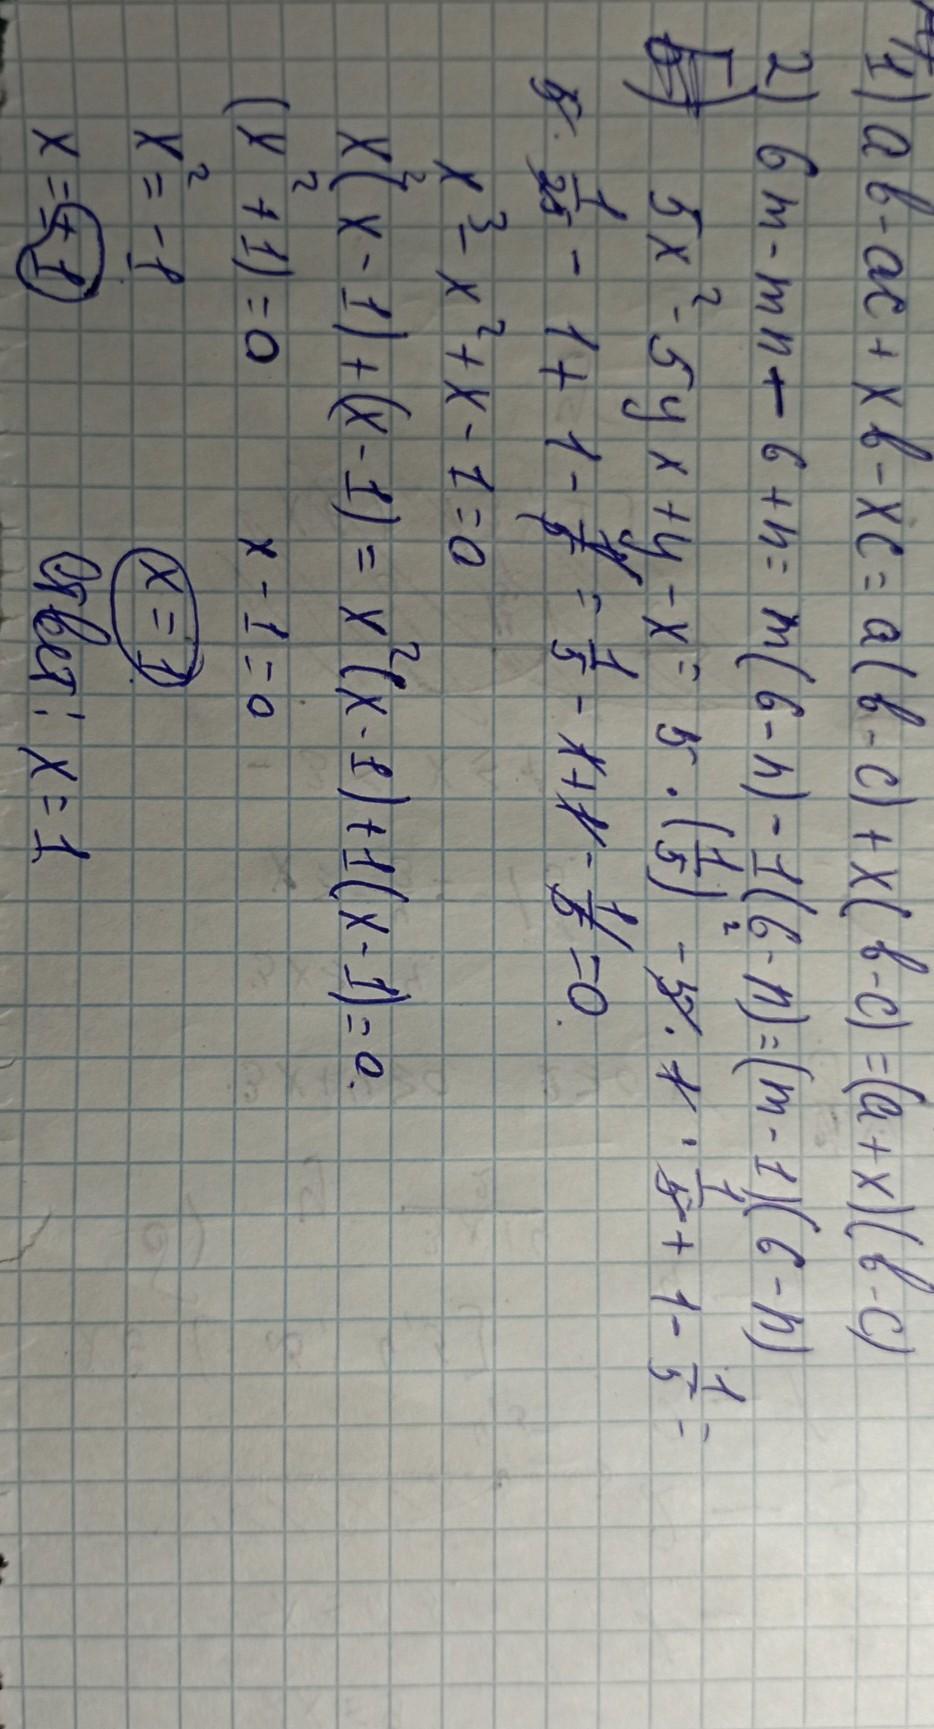 1) ab-ac+xb-xc=a(b-c)+x(b-c)=(a+x)(b-c)
2) 6m-mn-6+n=m(6-n)-1(6-n)=(m-1)(6-n)
5x²-5yx+y-x= 5·(1/5)² -5·1·1/5+1-1/5=
5·1/25-1+1-1/5=1/5-1+1-1/5=0.
x³-x²+x-1=0
x²(x-1)+(x-1)=x²(x-1)+1(x-1)=0.
(x²+1)=0 x-1=0
x²=-1 x=1
x=±1 Ответ: x=1